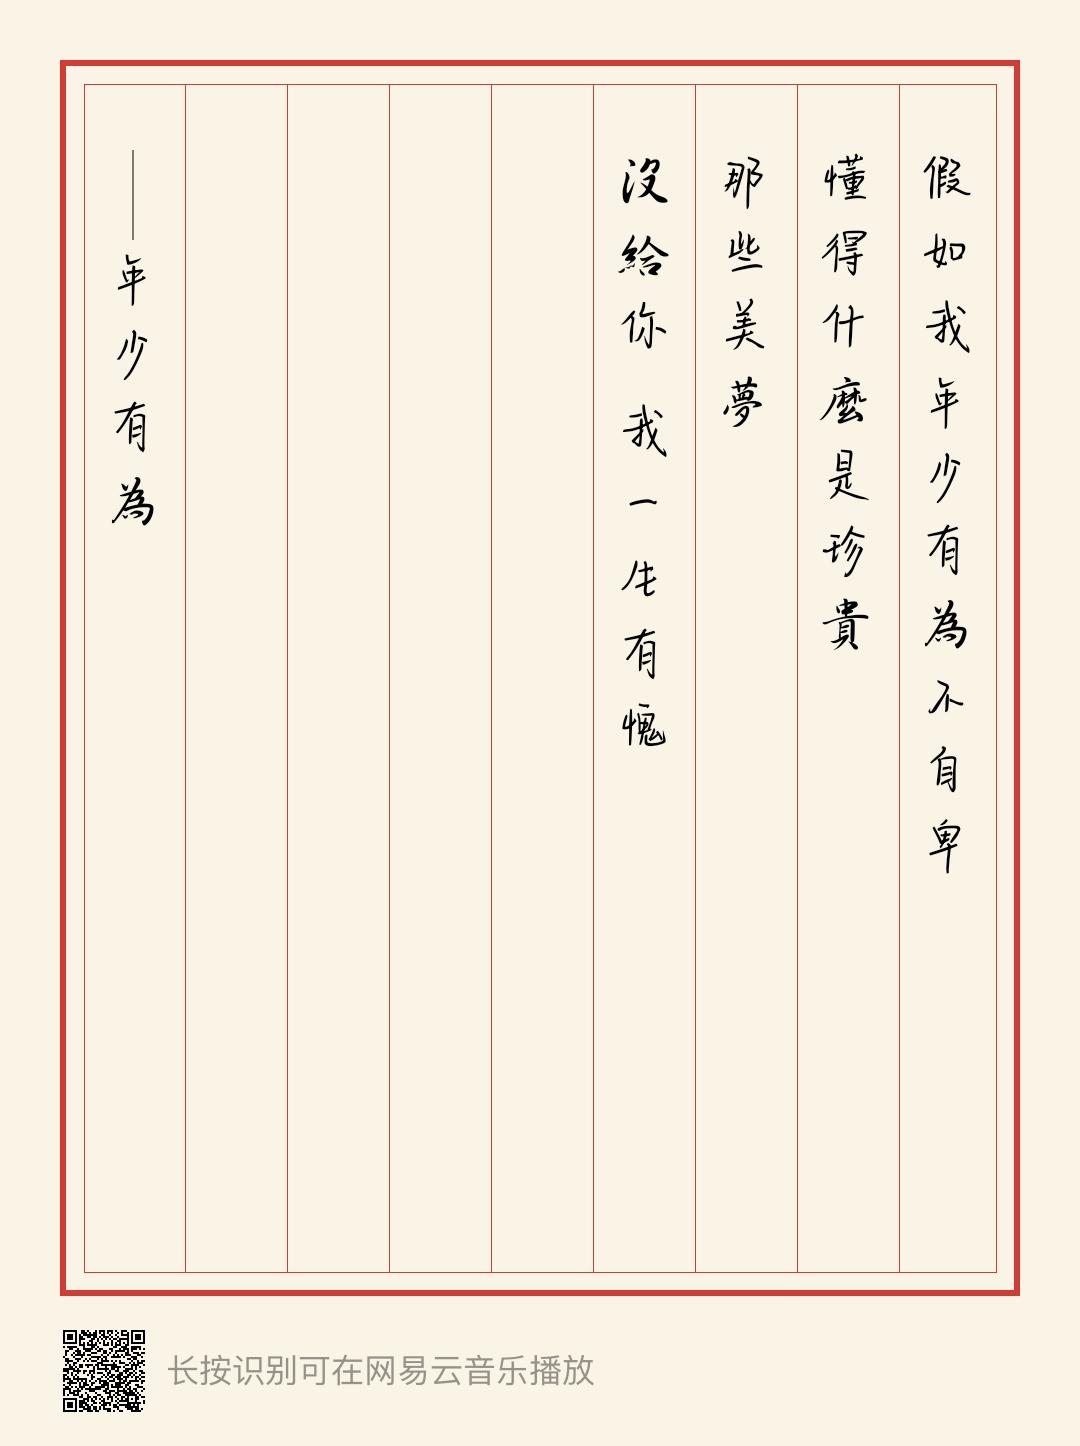 假如我年少有為不自卑
懂得什麼是珍貴
那些美夢
沒給你 我一生有愧
——年少有為
长按识别可在网易云音乐播放